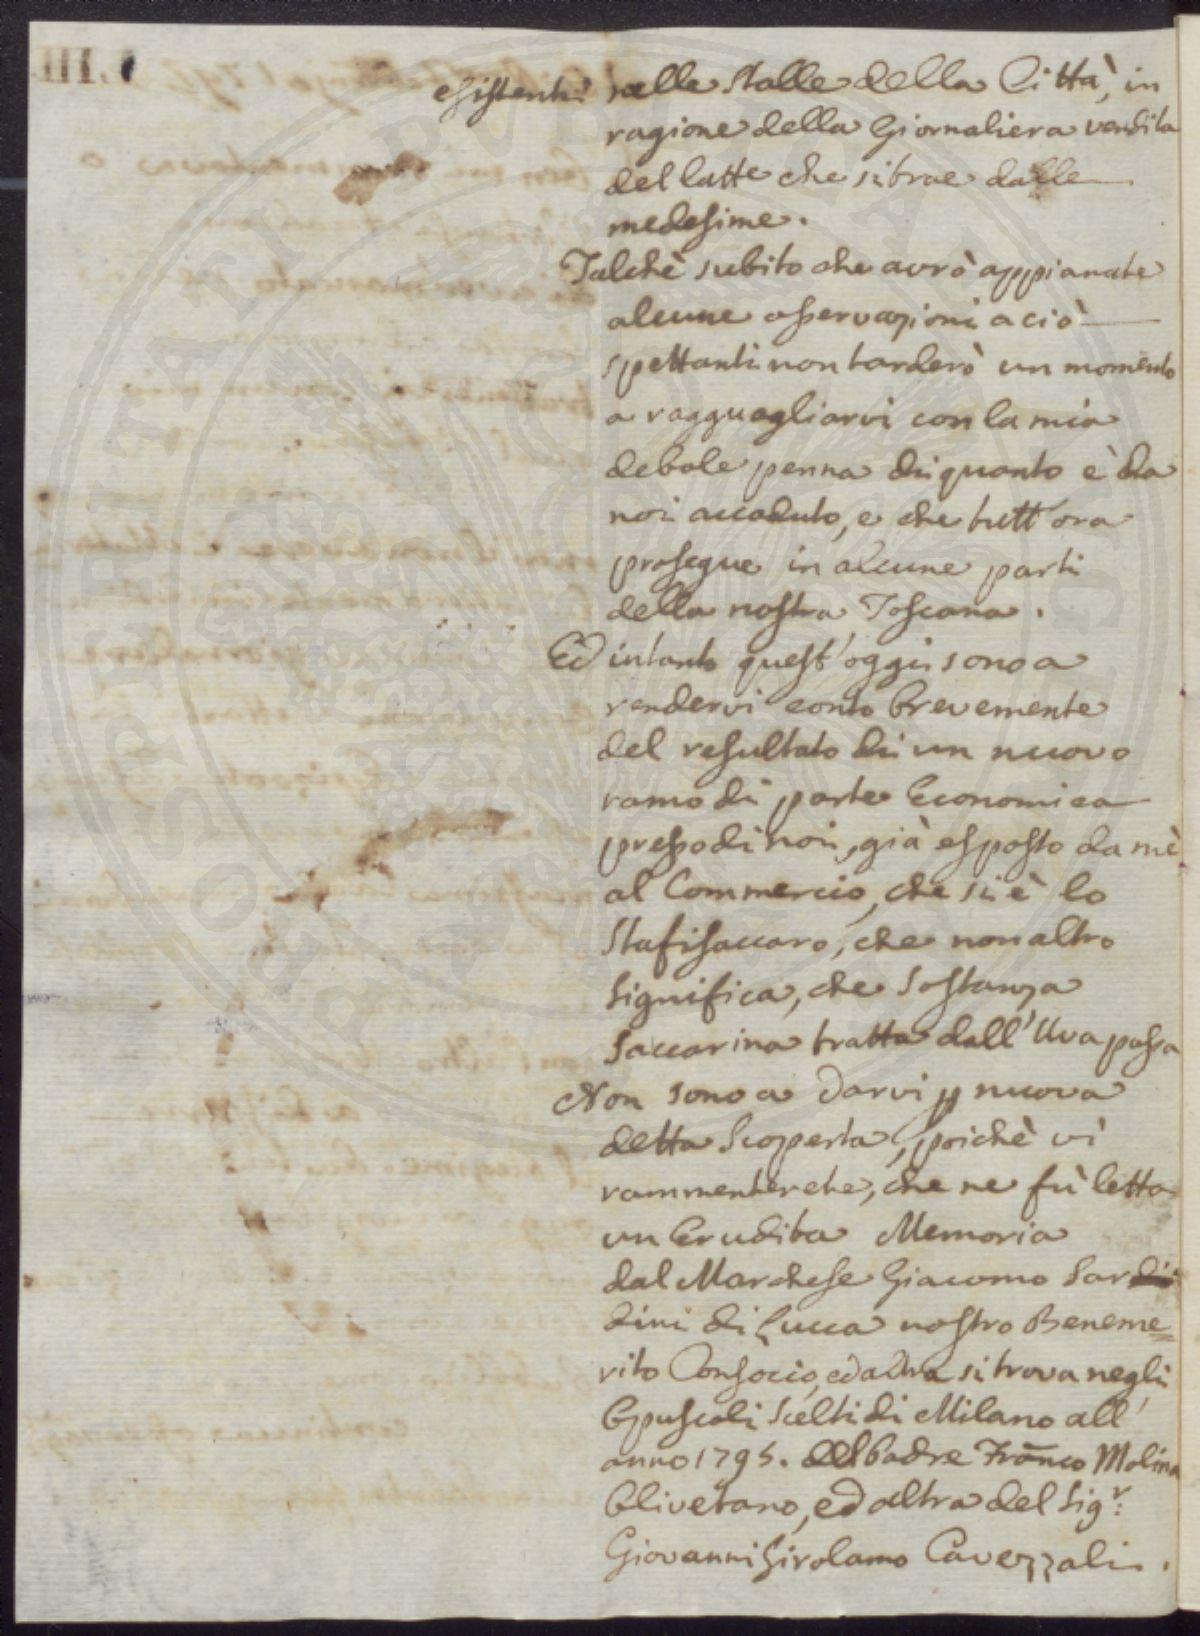 esistenti nelle Stalle della Città, in
ragione della Giornaliera vendita
del latte che si trae dalle
medesime.
Talchè subito che avrò appianate
alcune osservazioni a ciò
spettanti non tarderò un momento
a ragguagliarvi con la mia
debole penna di quanto è da
noi accaduto, e che tutt'ora
prosegue in alcune parti
della nostra Toscana.
Ed intanto quest'oggi sono a
rendervi conto brevemente
del resultato di un nuovo
ramo di parte Economica
presso di noi, già esposto da mè
al Commercio, che si è lo
Stafisaccaro, che non altro
significa, che Sostanza
Saccarina tratta dall'Uva passa
Non sono a darvi p nuova
detta Scoperta, poichè vi
rammenterete, che ne fù letta
un Erudita Memoria
dal Marchese Giacomo Sardi
dini di Lucca nostro Beneme=
rito Consocio, ed altra si trova negli
Opuscoli Scelti di Milano all'
anno 1795. del Padre Franco Molina
Olivetano, ed altra del Sigr:
Giovanni Girolamo Cavezzali.